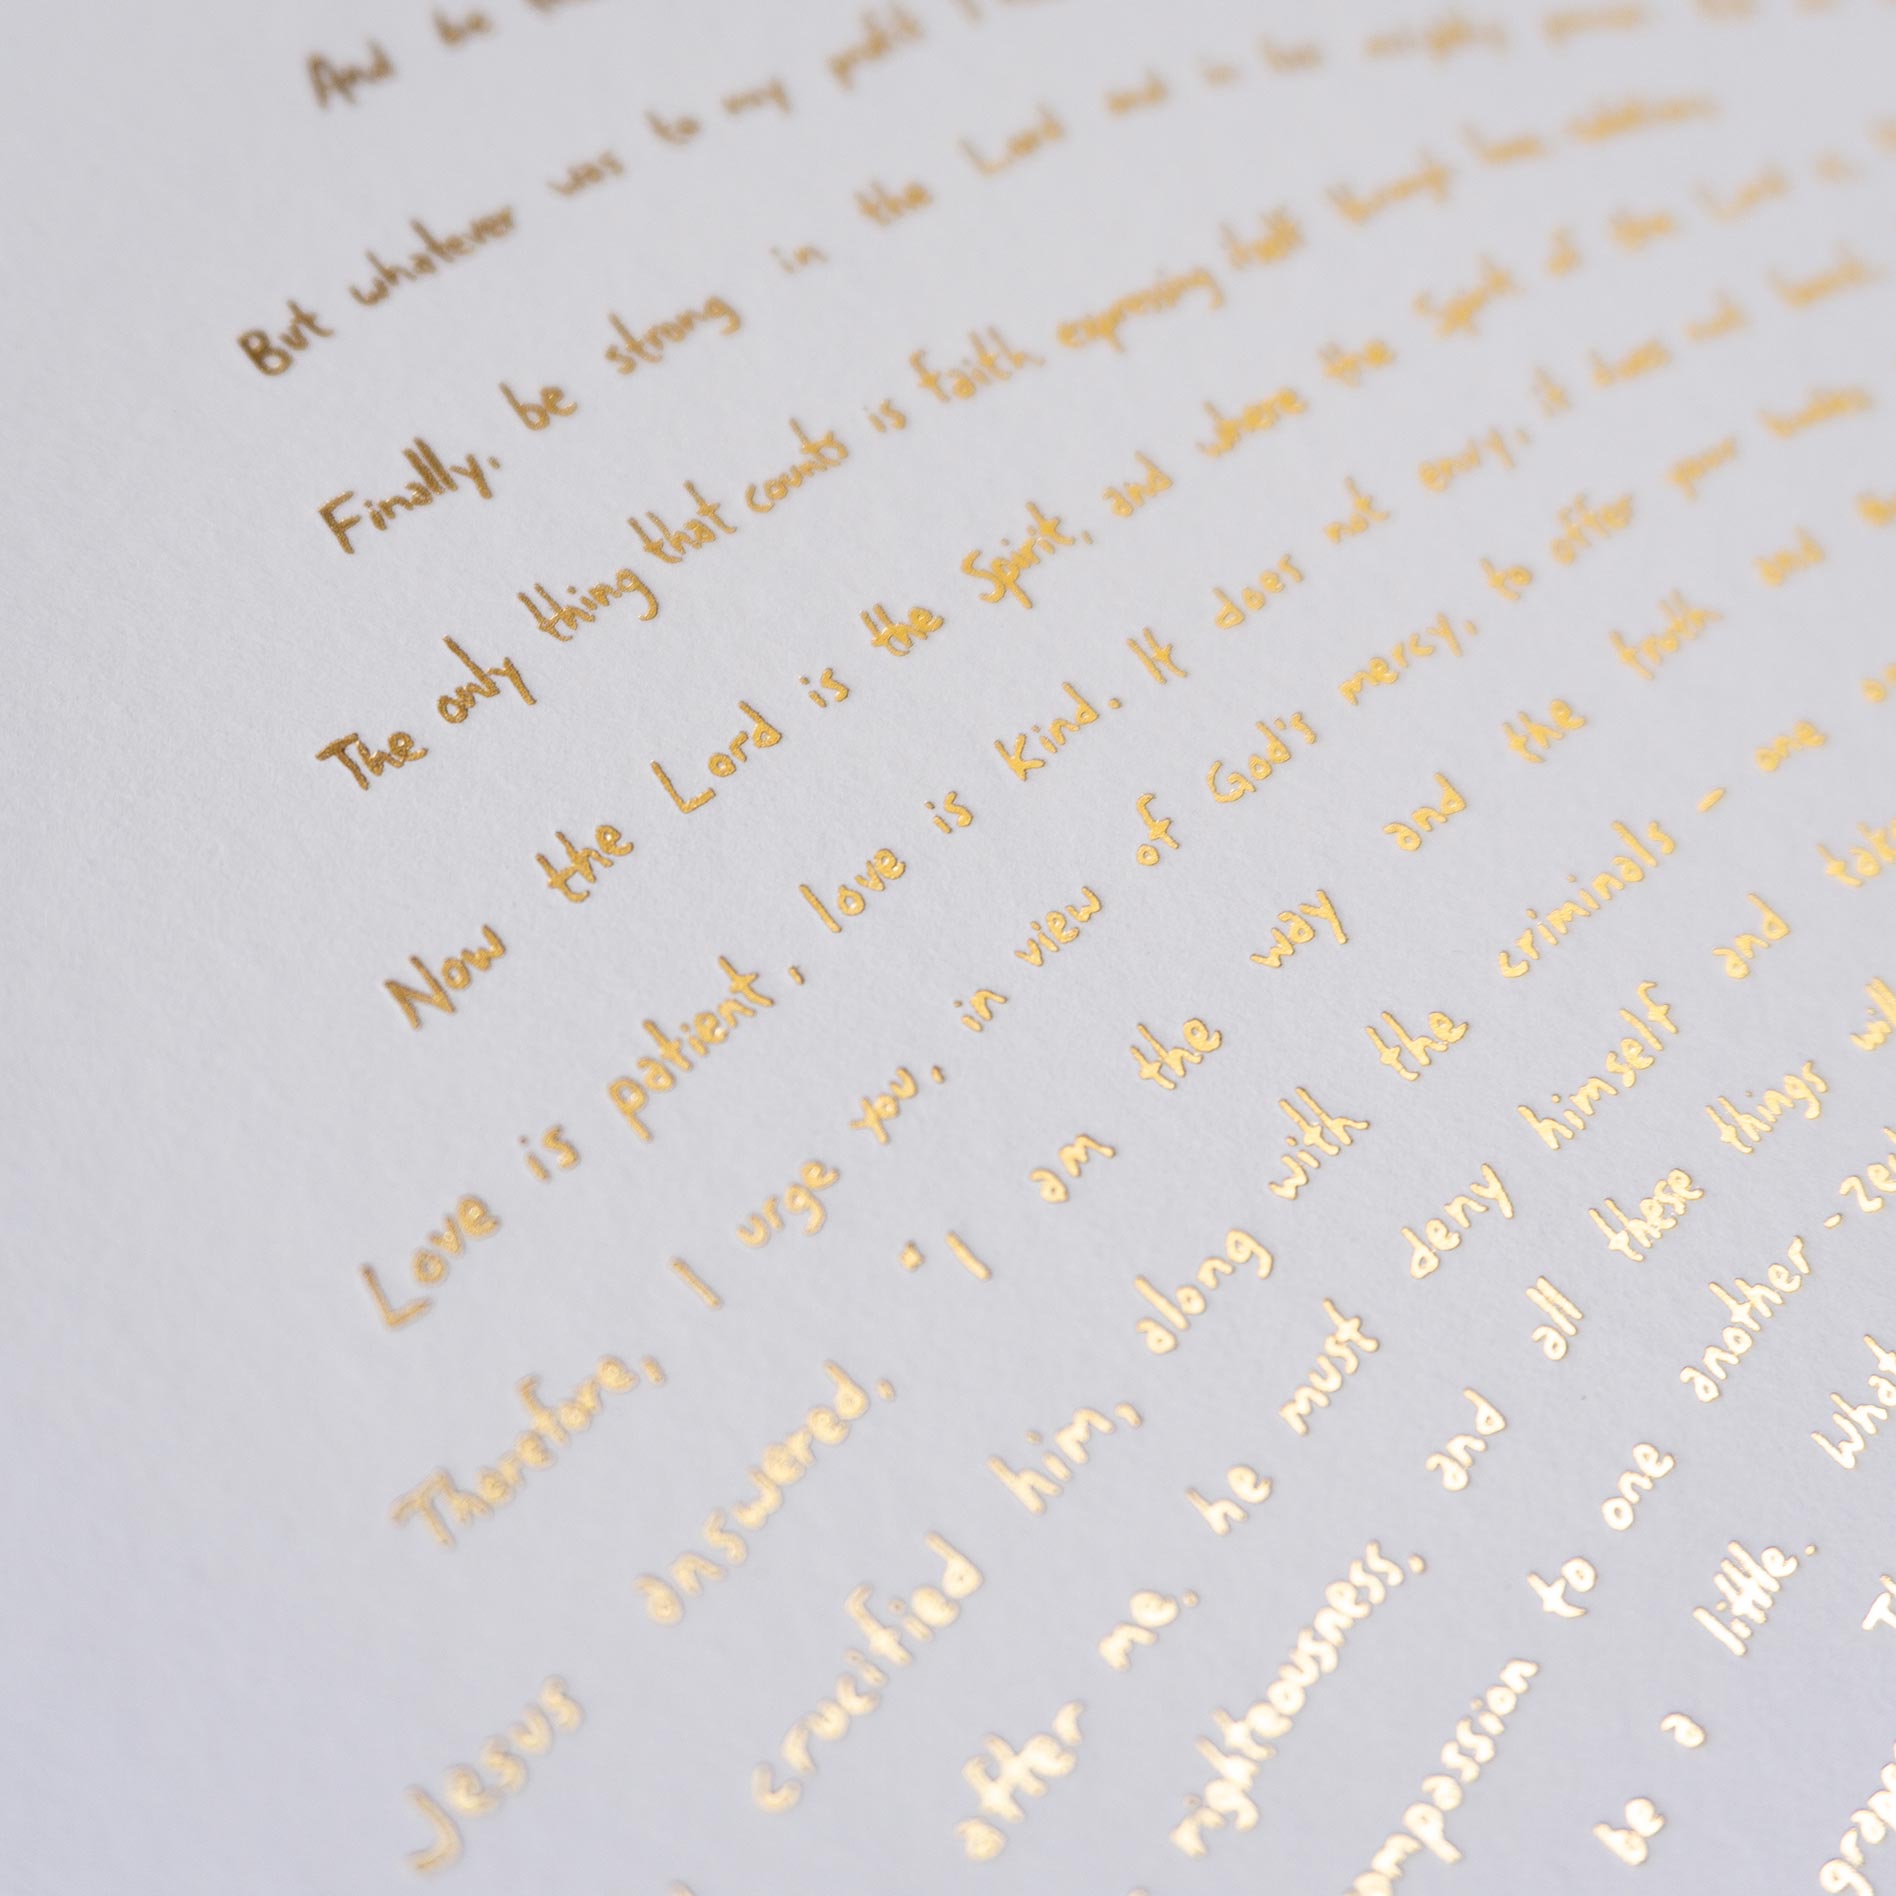 And be
But whatever was to my profit I
Finally, be strong in the Lord and in his mighty power.
The only thing that counts is faith expressing itself through love.
Now the Lord is the Spirit, and where the Spirit of the Lord is,
Love is patient, love is kind. It does not envy, it does not boast,
Therefore, I urge you, in view of God's mercy, to offer your bodies
Jesus answered, "I am the way and the truth and the
crucified him, along with the criminals - one on
after me. he must deny himself and take
righteousness, and all these things will
compassion to one another - Zech
be a little. What
grape